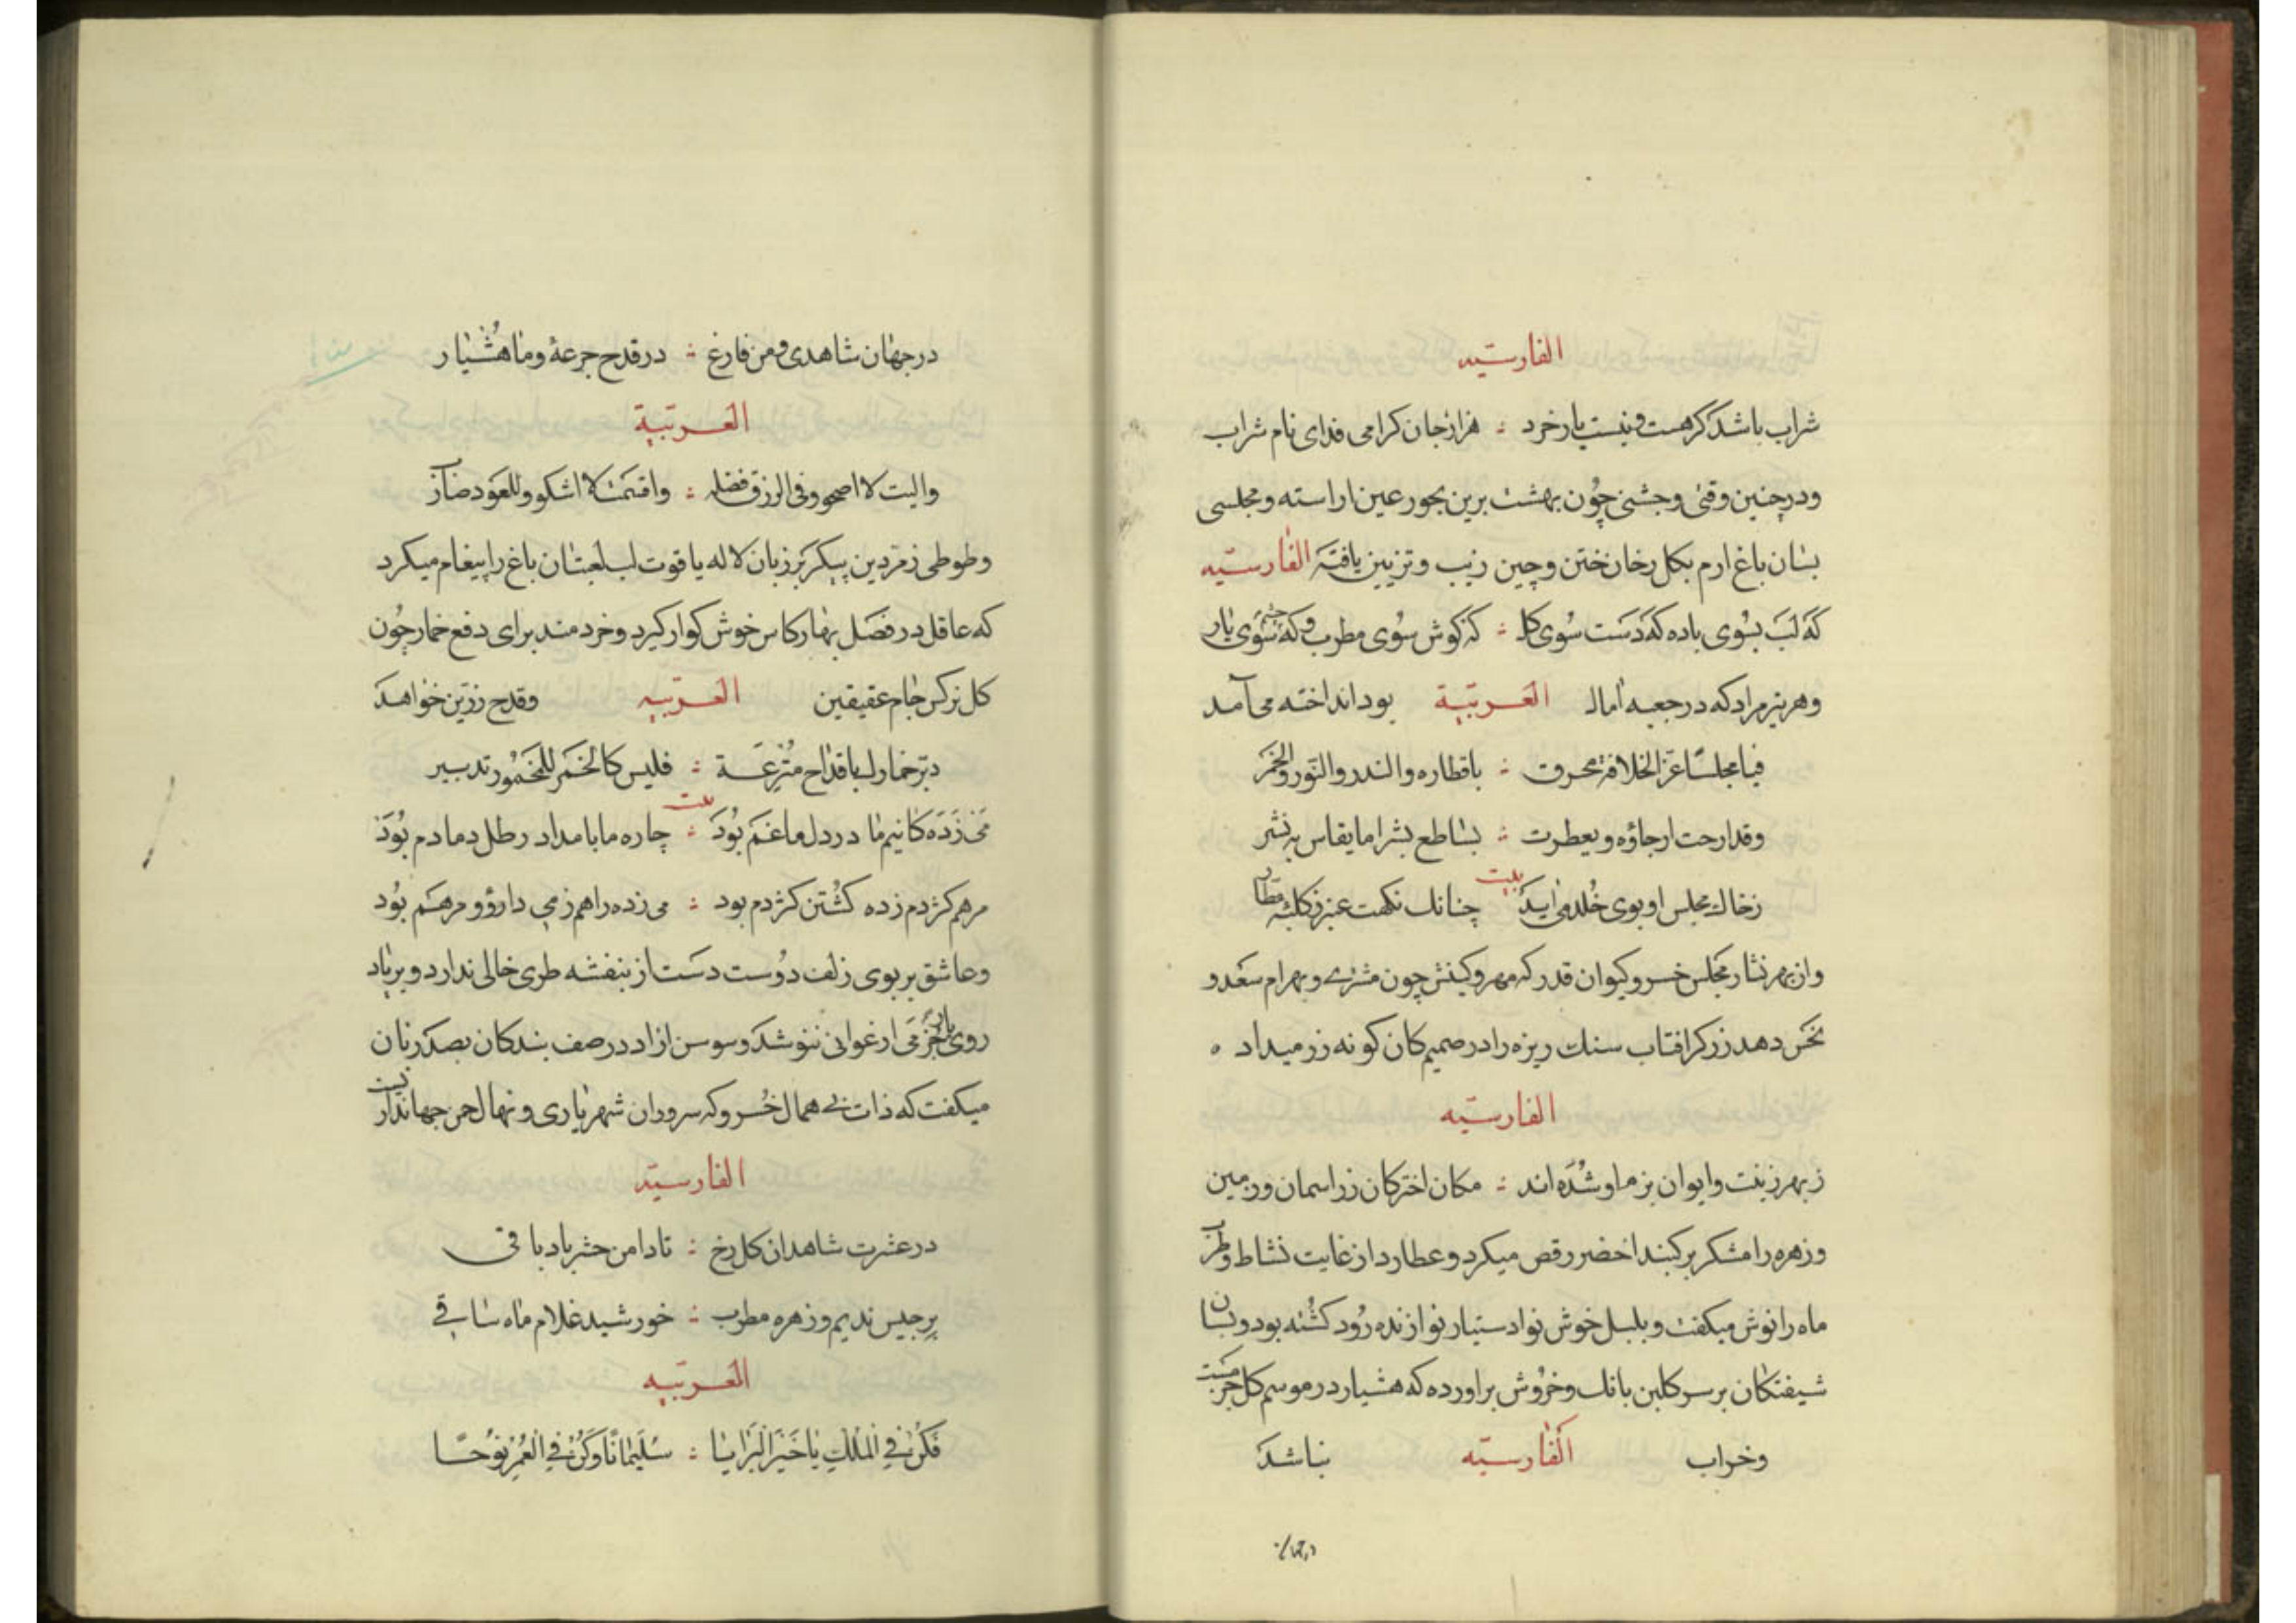 الفارسیه
شراب باشد کر هست و نیست یار خرد ∴ هزار جان کرامی فدای نام شراب
و در چنین وقتی و جشنی چون بهشت برین بحور عین اراسته و مجلسی
بسان باغ ارم بکل رخان ختن و چین زیب و تزیین یافته الفارسیّه
که لب بسوی باده که دست سوی کل ∴ که کوش سوی مطرب و که چشم سوی یار
و هر تیر مراد که در جعبه امال العربیّة بود انداخته می آمد
فیا مجلسًا عزّ الخلافة محرق ∴ باقطاره والند والنور والخمر
وقد ارحت ارجاؤه و یعطرت ∴ بساطع بشر اما یقاس به نشر
زخاك مجلس او بوی خلد می اید بیت چنانك نکهت عنبر ز کلبه عطار
و از بهر نثار مجلس خسرو کیوان قدر که مهر و کینش چون مشتری و بهرام سعد و
نحس دهد زرکر افتاب سنك ریزه را در صمیم کان کونه زر میداد ه
الفارسیّه
ز بهر زینت و ایوان بزم او شده اند ∴ مکان اختر کان زر اسمان و زمین
و زهره رامشکر بر کنبد اخضر رقص میکرد و عطارد از غایت نشاط و طرب
ماه را نوش میکفت و بلبل خوش نوا دستیار نوازنده رود کشته بود و بسان
شیفتکان بر سر کلبن بانك و خروش براورده که هشیار در موسم کل جز مست
و خراب الفارسیّه نباشد
در جهان
در جهان شاهدی و من فارغ ∴ در قدح جرعهٔ و ما هشیار
العربیّة
والیت لا اصحو و فی الزق فضله ∴ واقسمت لا اشکو وللعود ضارب
و طوطی زمردین پیکر بر زبان لاله یاقوت لب لعبتان باغ را پیغام میکرد
که عاقل در فصل بهار کاس خوش کوار کیرد و خردمند برای دفع خمار چون
کل نرکس جام عقیقین العربیّه و قدح زرّین خواهد
دبّر خمارك باقداح مُتْرَعَة ∴ فلیس کالخمر للمخمور تدبیر
می زده کانیم ما در دل ما غم بود بیت ∴ چاره ما بامداد رطل دمادم بود
مرهم کژدم زده کشتن کژدم بود ∴ می زده را هم ز می دارو و مرهم بود
و عاشق بر بوی زلف دوست دست از بنفشه طری خالی ندارد و بر یاد
روی یار جز می ارغوانی ننوشد و سوسن ازاد در صف بندکان بصد زبان
میکفت که ذات بی همال خسرو که سرو دان شهریاری و نهال چمن جهاندار یست
الفارسیّه
در عشرت شاهدان کل رخ ∴ تا دامن حشر باد باقی
برجیس ندیم و زهره مطرب ∴ خورشید غلام ماه ساقی
العربیّه
فَکُنْ فی الْمُلْكِ یا خَیْرَ الْبَرَایَا ∴ سُلَیْمَانًا وَکُنْ فی الْعُمْرِ نُوحًا